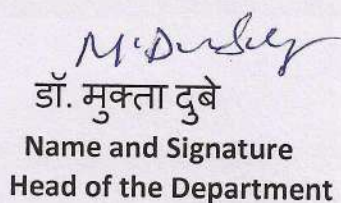 डॉ. मुक्ता दुबे
Name and Signature
Head of the Department